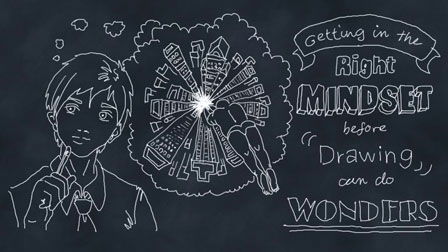 Getting in the
Right
MINDSET
before
"Drawing„
can do
WONDERS